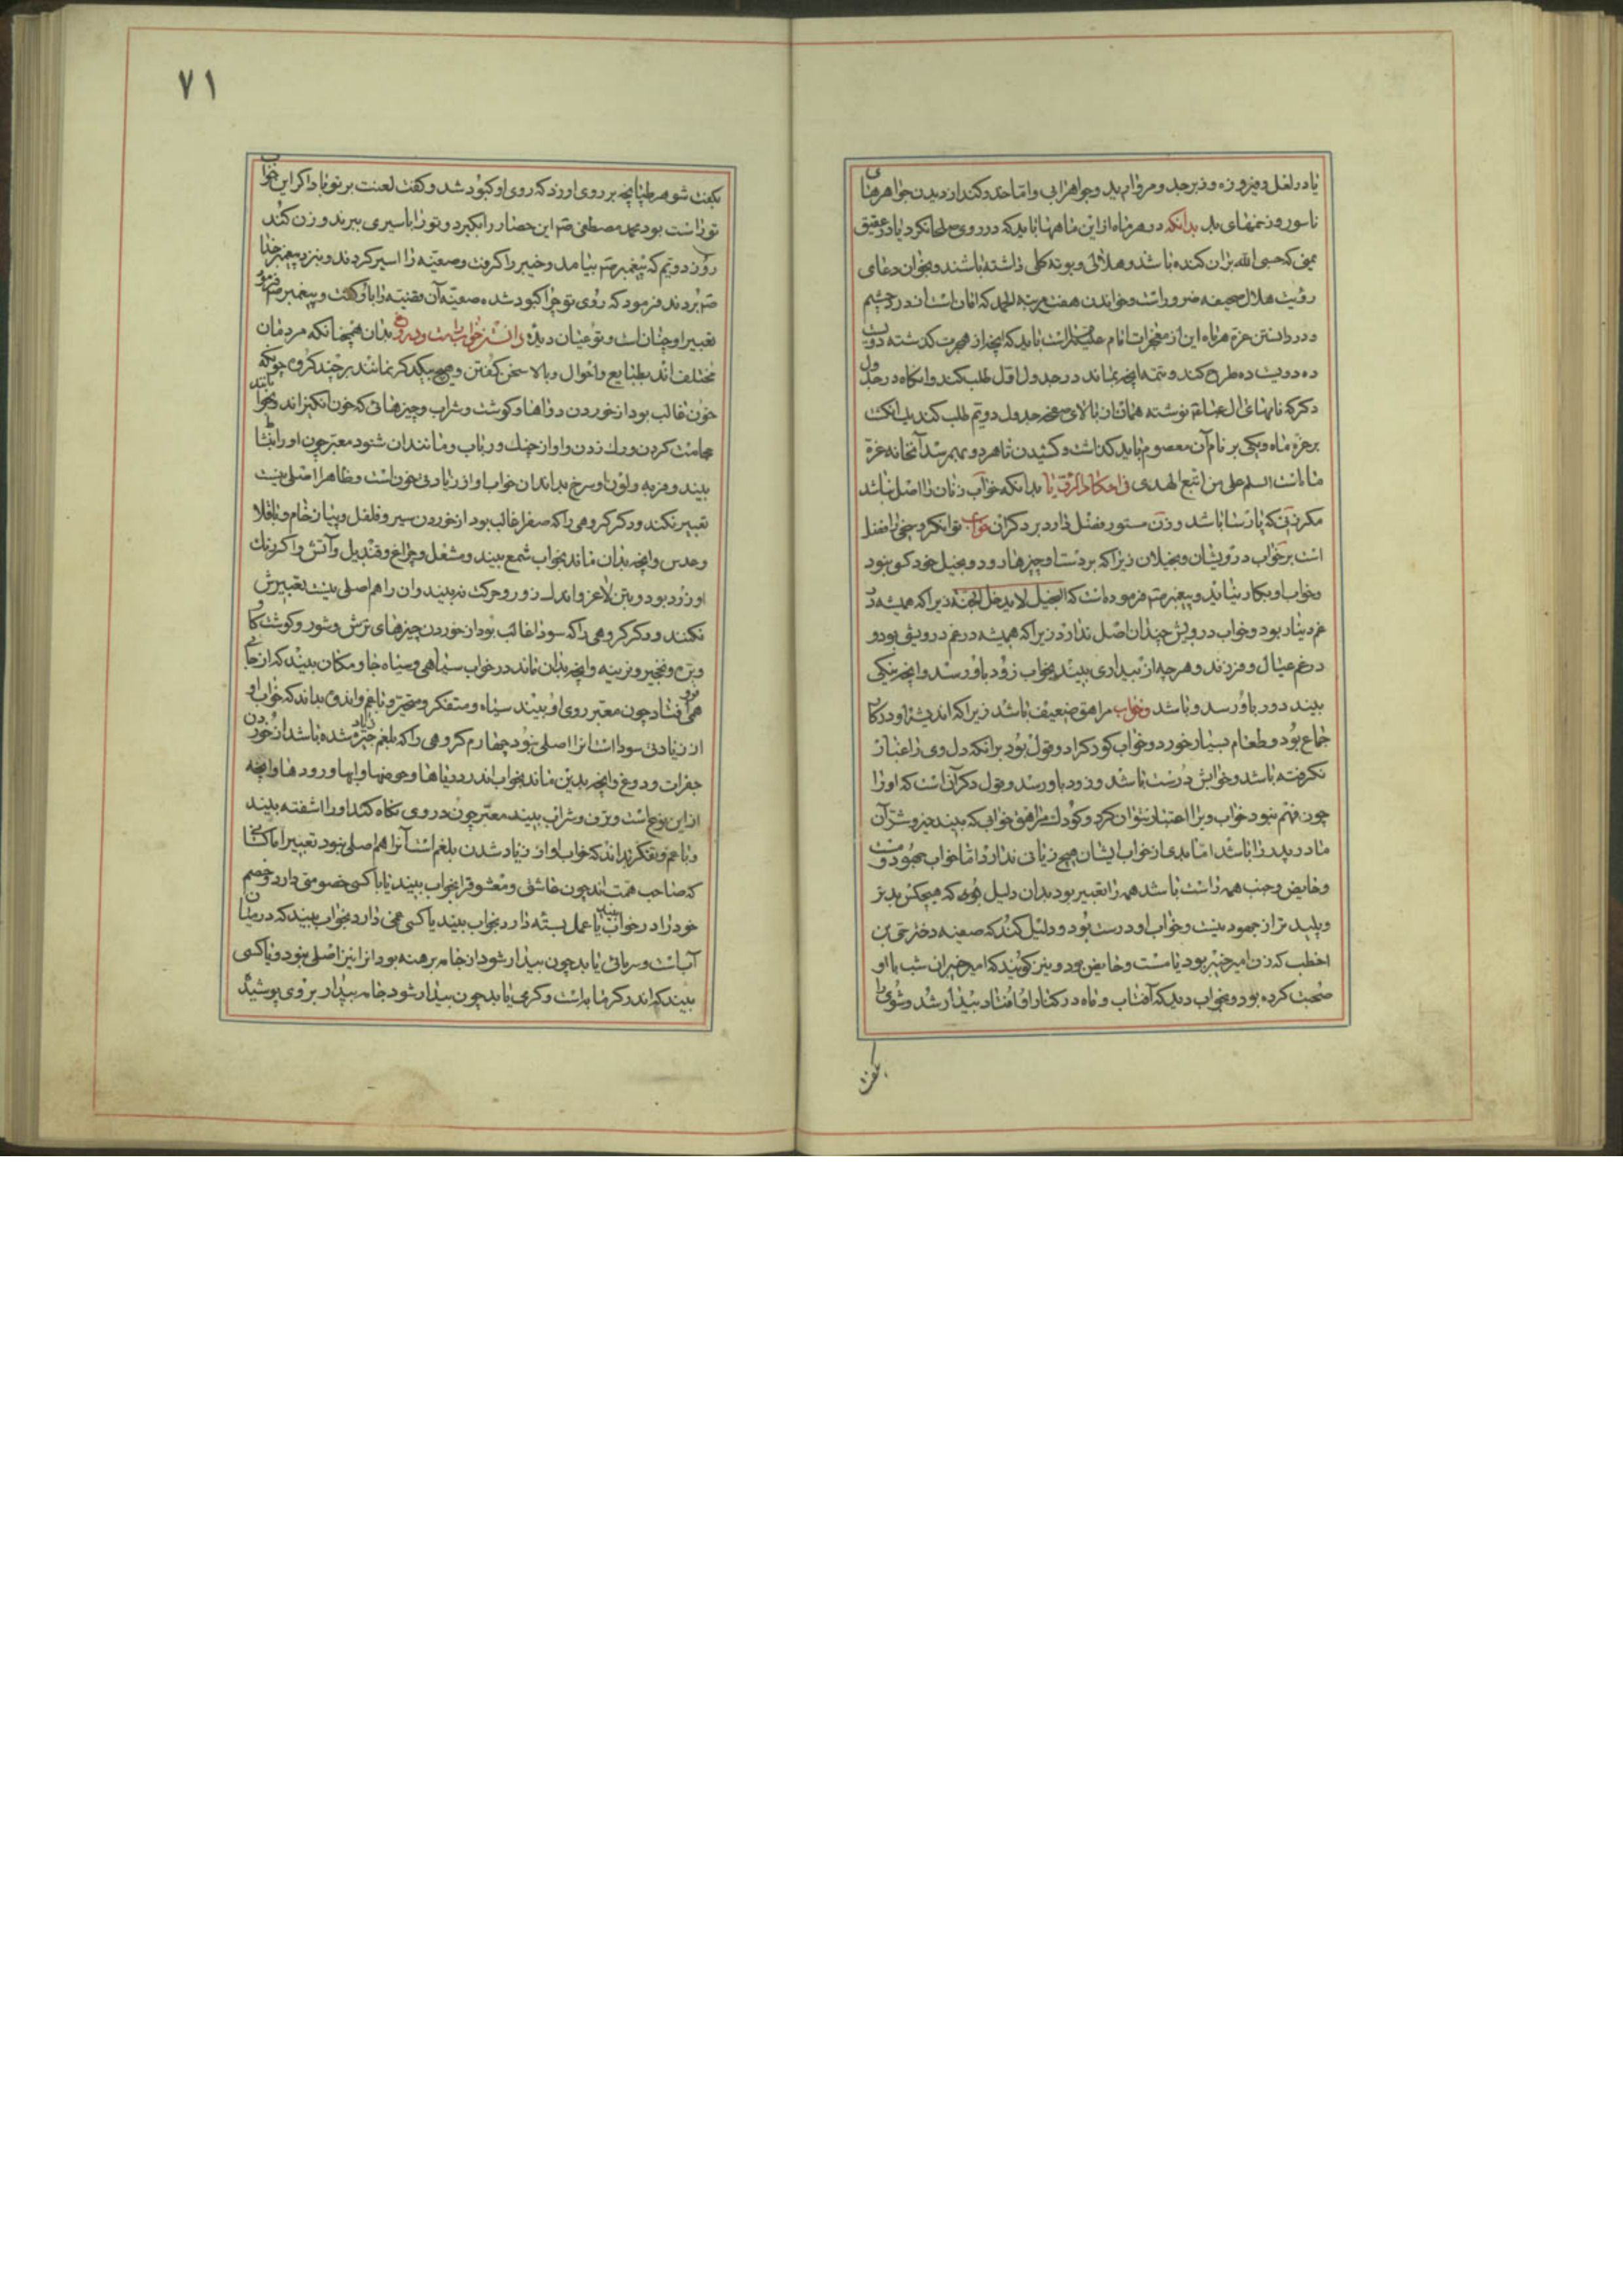 یا در لعل و فیروزه و زبرجد و مروارید و جواهرابی و اما حذر کند از دیدن جواهرهای
ناسور و زخمهای بد بدانکه در هر ماه از این ماهها باید که در روی طلا نگرد یا در عقیق
یمنی که حسبی الله بران کنده باشد و هلالی و بوته کلی داشته باشند و بخوان دعای
رؤیت هلال صحیفه ضرور است و خواندن هفت مرتبه الحمد که امان است از درد چشم
و در دانستن غره هر ماه این از معجزات امام علیه السلام است باید که آنچه از هجرت گذشته دویست
ده دویست ده طرح کند و تتمه آنچه بماند در جدول اول طلب کند و انگاه در جدول
دکر که نامهای ال عبا نوشته همانان بالای صفحه جدول دویم طلب کند یک انکشت
بر غره ماه و یکی بر نام آن معصوم باید گذاشت و کشیدن تا هر دو بهم رسد آنخانه غره
ماه است السلام علی من اتبع الهدی فی احکام الرؤیا بدانکه خواب زنان را اصل نباشد
مکر زنی که پارسا باشد و زن مستور فضل دارد بر دکران خواب توانکر و سخی را فضل
است بر خواب درویشان و بخیلان زیرا که بر دست او چیزها رود و بخیل خود کسی نبود
و خواب او بکار نیاید و پیغمبر صم فرموده است که البخیل لا یدخل الجنه زیرا که همیشه در
غم دینار بود و خواب درویش چندان اصل ندارد زیرا که همیشه در غم درویشی بود و
در غم عیال و فرزند و هر چه از بیداری بیند بخواب زود باو رسد و آنچه نیکی
بیند دور باو رسد و باشد و خواب مراهق ضعیف باشد زیرا که اندیشه او در کار
جماع بود و طعام بسیار خورد و خواب کودک را دو قول بود برانکه دل وی را غبار
نکرفته باشد و خوابش درست باشد و زود باو رسد و قول دکر آن است که او را
چون فهم نبود خواب ویرا اعتبار نتوان کرد و کودک مراهق خوابی که بیند خیر و شر آن
مادر پدر را باشد اما بدی از خواب ایشان هیچ زیانی ندارد اما خواب جهود و مست
و حایض و جنب همه راست باشد همه را تعبیر بود بدان دلیل بود که هیچکس بدتر
و پلید تر از جهود نیست و خواب او درست بود و دلیل کند که صفیه دختر حی بن
اخطب که زن امیر خیبر بود یا مست و حایض بود و نیز کویند که امیر خیبر ان شب با او
صحبت کرده بود و بخواب دید که آفتاب و ماه در کنار او افتاد بیدار شد و شوی را
بگفت
۷۱
بکفت شوهر طپانچه بر روی او زد که روی او کبود شد و کفت لعنت بر تو باد اکر این خواب
تو راست بود محمد مصطفی صم این حصار را بکیرد و تو را باسیری ببرند و زن کند
روز دویم که پیغمبر صم بیامد و خیبر را کرفت و صفیه را اسیر کردند و بنزد پیغمبر خدا
صم بردند فرمود که روی تو چرا کبود شده صفیه آن قضیه را باو کفت و پیغمبر صم فرمود
تعبیر او چنان است و تو عیان دیدی دانستن خواب راست و دروغ بدان همچنانکه مردمان
مختلف اند بطبایع و احوال و بالا سخن کفتن و هیچ بیکدکر نمانند بر چند کروه چونکه
خون غالب بود از خوردن دواها و کوشت و شراب و چیزهائی که خون انکیزاند و بخواب
حجامت کردن و رک زدن و اواز چنک و رباب و مانند ان شنود معبر چون او را
بیند و فربه و لون او سرخ بداند ان خواب او از زیادتی خون است و ظاهرا اصلی نیست
تعبیر نکند و دکر کروهی را که صفرا غالب بود از خوردن سیر و فلفل و پیاز خام و باقلا
و عدس و آنچه بدان ماند بخواب شمع بیند و مشعل و چراغ و قندیل و آتش و اکر رنک
او زرد بود و بتن لاغر و اندک زور و حرکت نه بیند و ان را هم اصلی نیست تعبیرش
نکنند و دکر کروهی را که سودا غالب بود از خوردن چیزهای ترش و شور و کوشت کاو
و بز و نخجیر و تربینه و آنچه بدان ماند در خواب سیاهی و سیاه جا و مکان بیند که از جائی
همی افتاد چون معبر روی او بیند سیاه و متفکر و متحیر و با غم و اندوه بداند که خواب او
از زیادتی سودا است انرا اصلی نبود چهارم کروهی را که بلغم چیره شده باشد از خوردن
جغرات و دوغ و آنچه بدین ماند بخواب اندر دریاها و حوضها و ابها و رودها و آنچه
از این نوع است و برف و شراب بیند معبر چون در روی نکاه کند او را اشفته بیند
و با غم و تفکر بداند که خواب او از زیاد شدن بلغم است آنرا هم اصلی نبود تعبیر اما کسانی
که صاحب همت اند چون عاشق و معشوق را بخواب بیند یا با کسی خصومتی دارد و خصم
خود را در خواب بیند یا عمل بسته دارد بخواب بیند یا کسی غمی دارد بخواب بیند که در میان
آب است و سرمائی یابد چون بیدار شود از جامه برهنه بود انرا نیز اصلی نبود و یا کسی
بیند که اندر کرمابه است و کرمی یابد چون بیدار شود جامه بسیار بر وی پوشیده